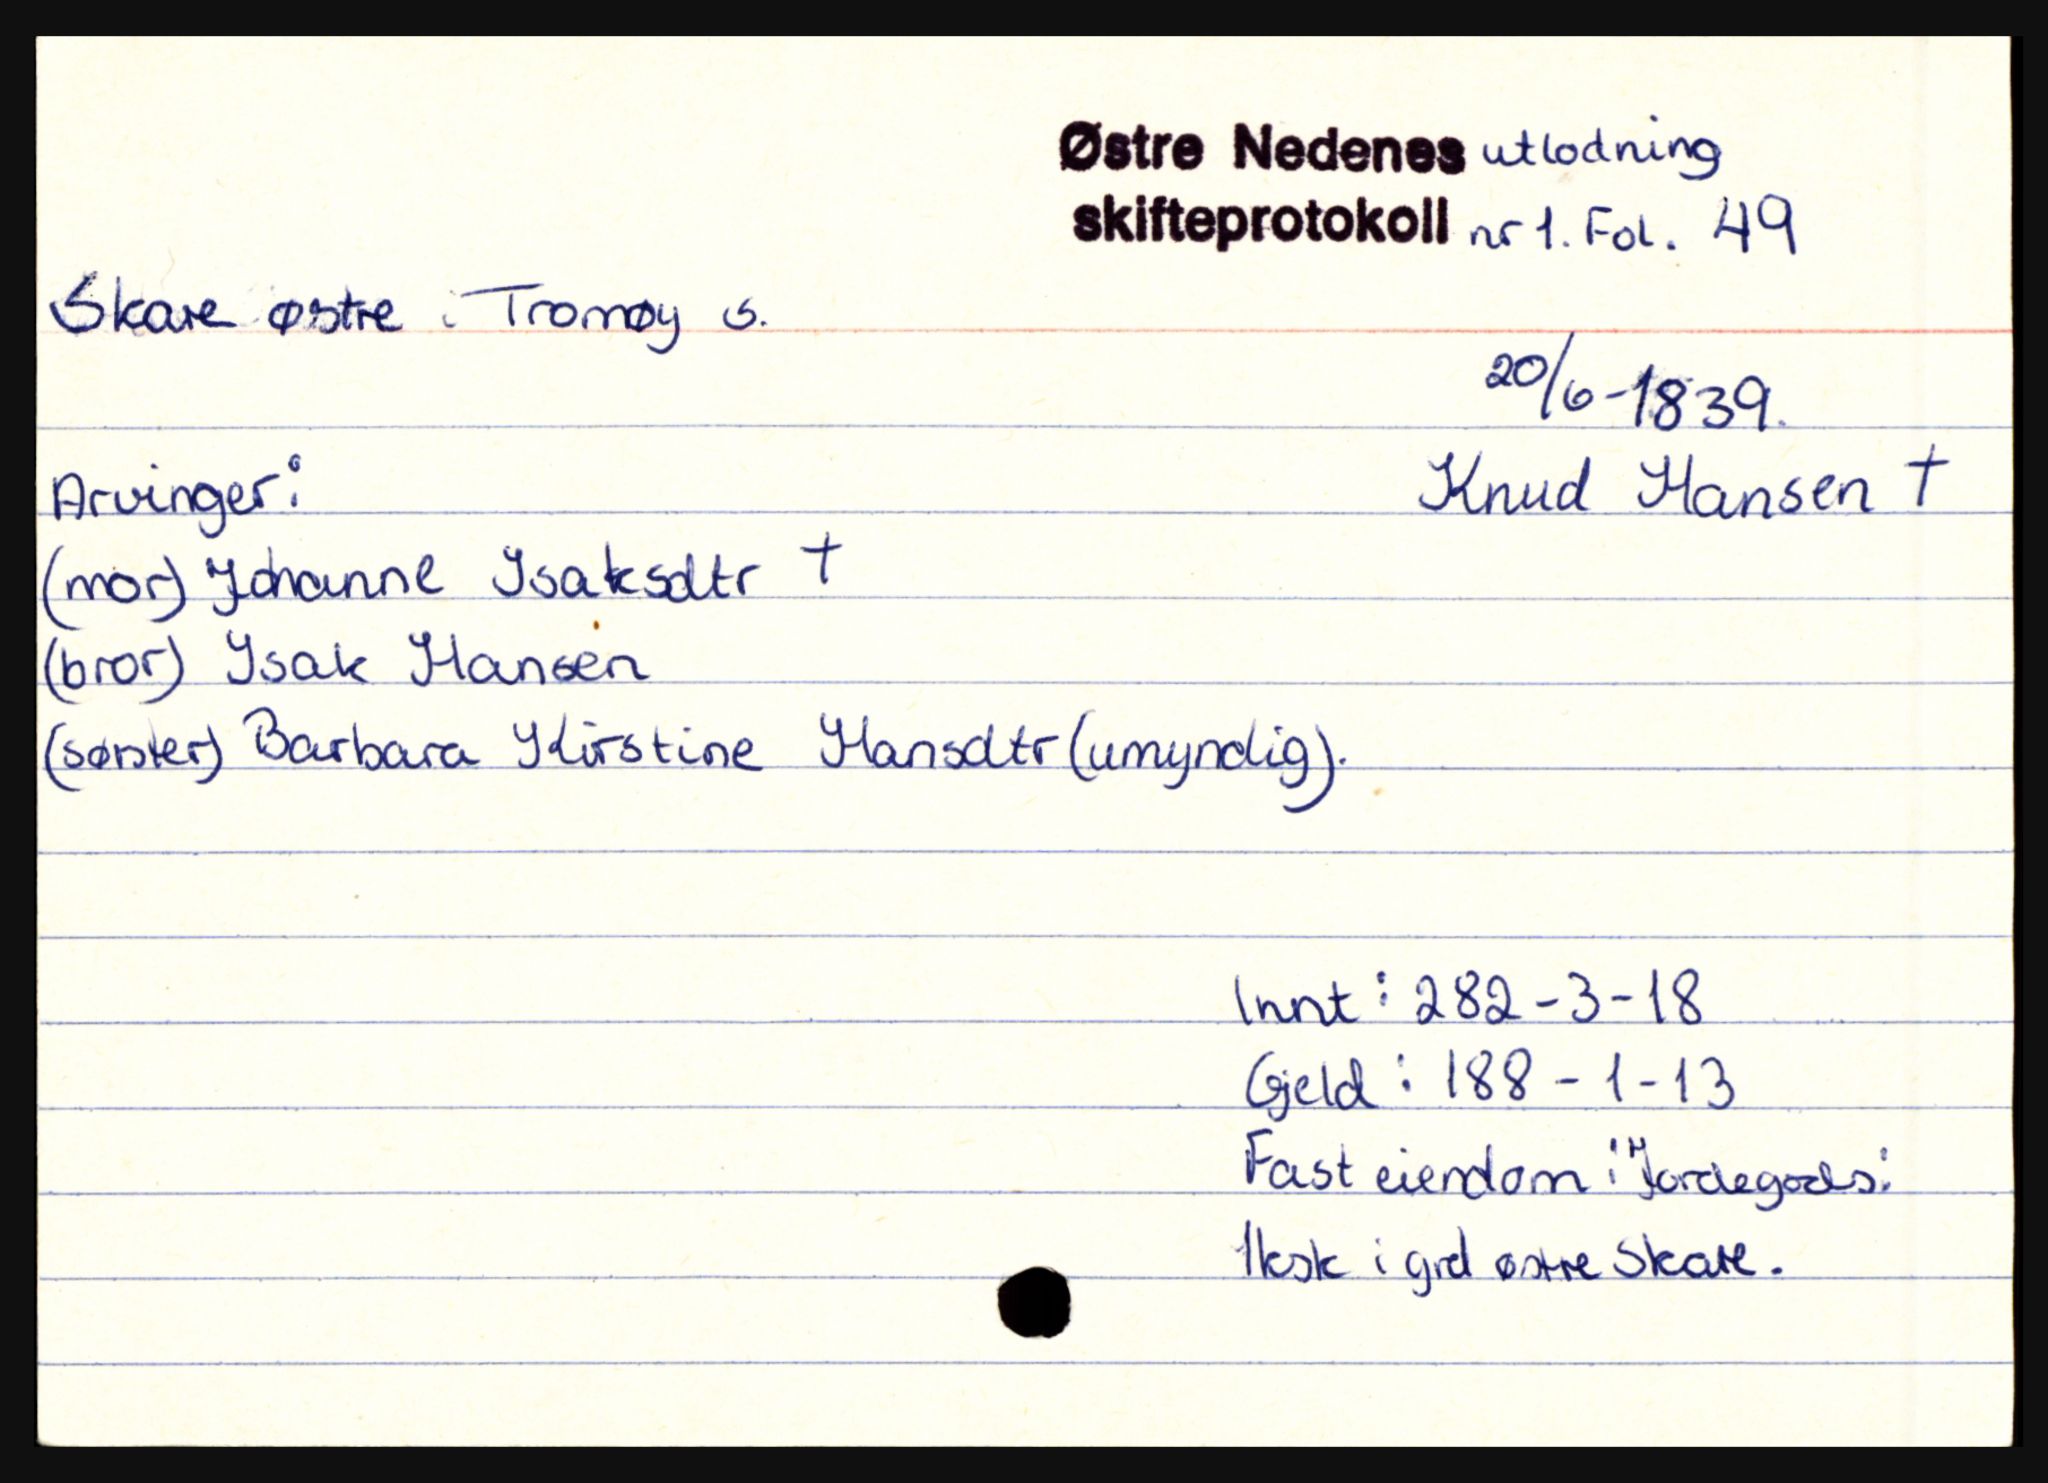 Østre Nedenes utlodning
skifteprotokoll nr 1. Fol. 49
Skare østre i Tromøy s.
20/6-1839.
Arvinger:
Knud Hansen †
(mor) Johanne Isaksdtr †
(bror) Isak Hansen
(søster) Barbara Kirstine Hansdtr (umyndig).
Innt: 282-3-18
Gjeld: 188-1-13
Fast eiendom i "Jordegods:
1ksk i grd østre Skare.